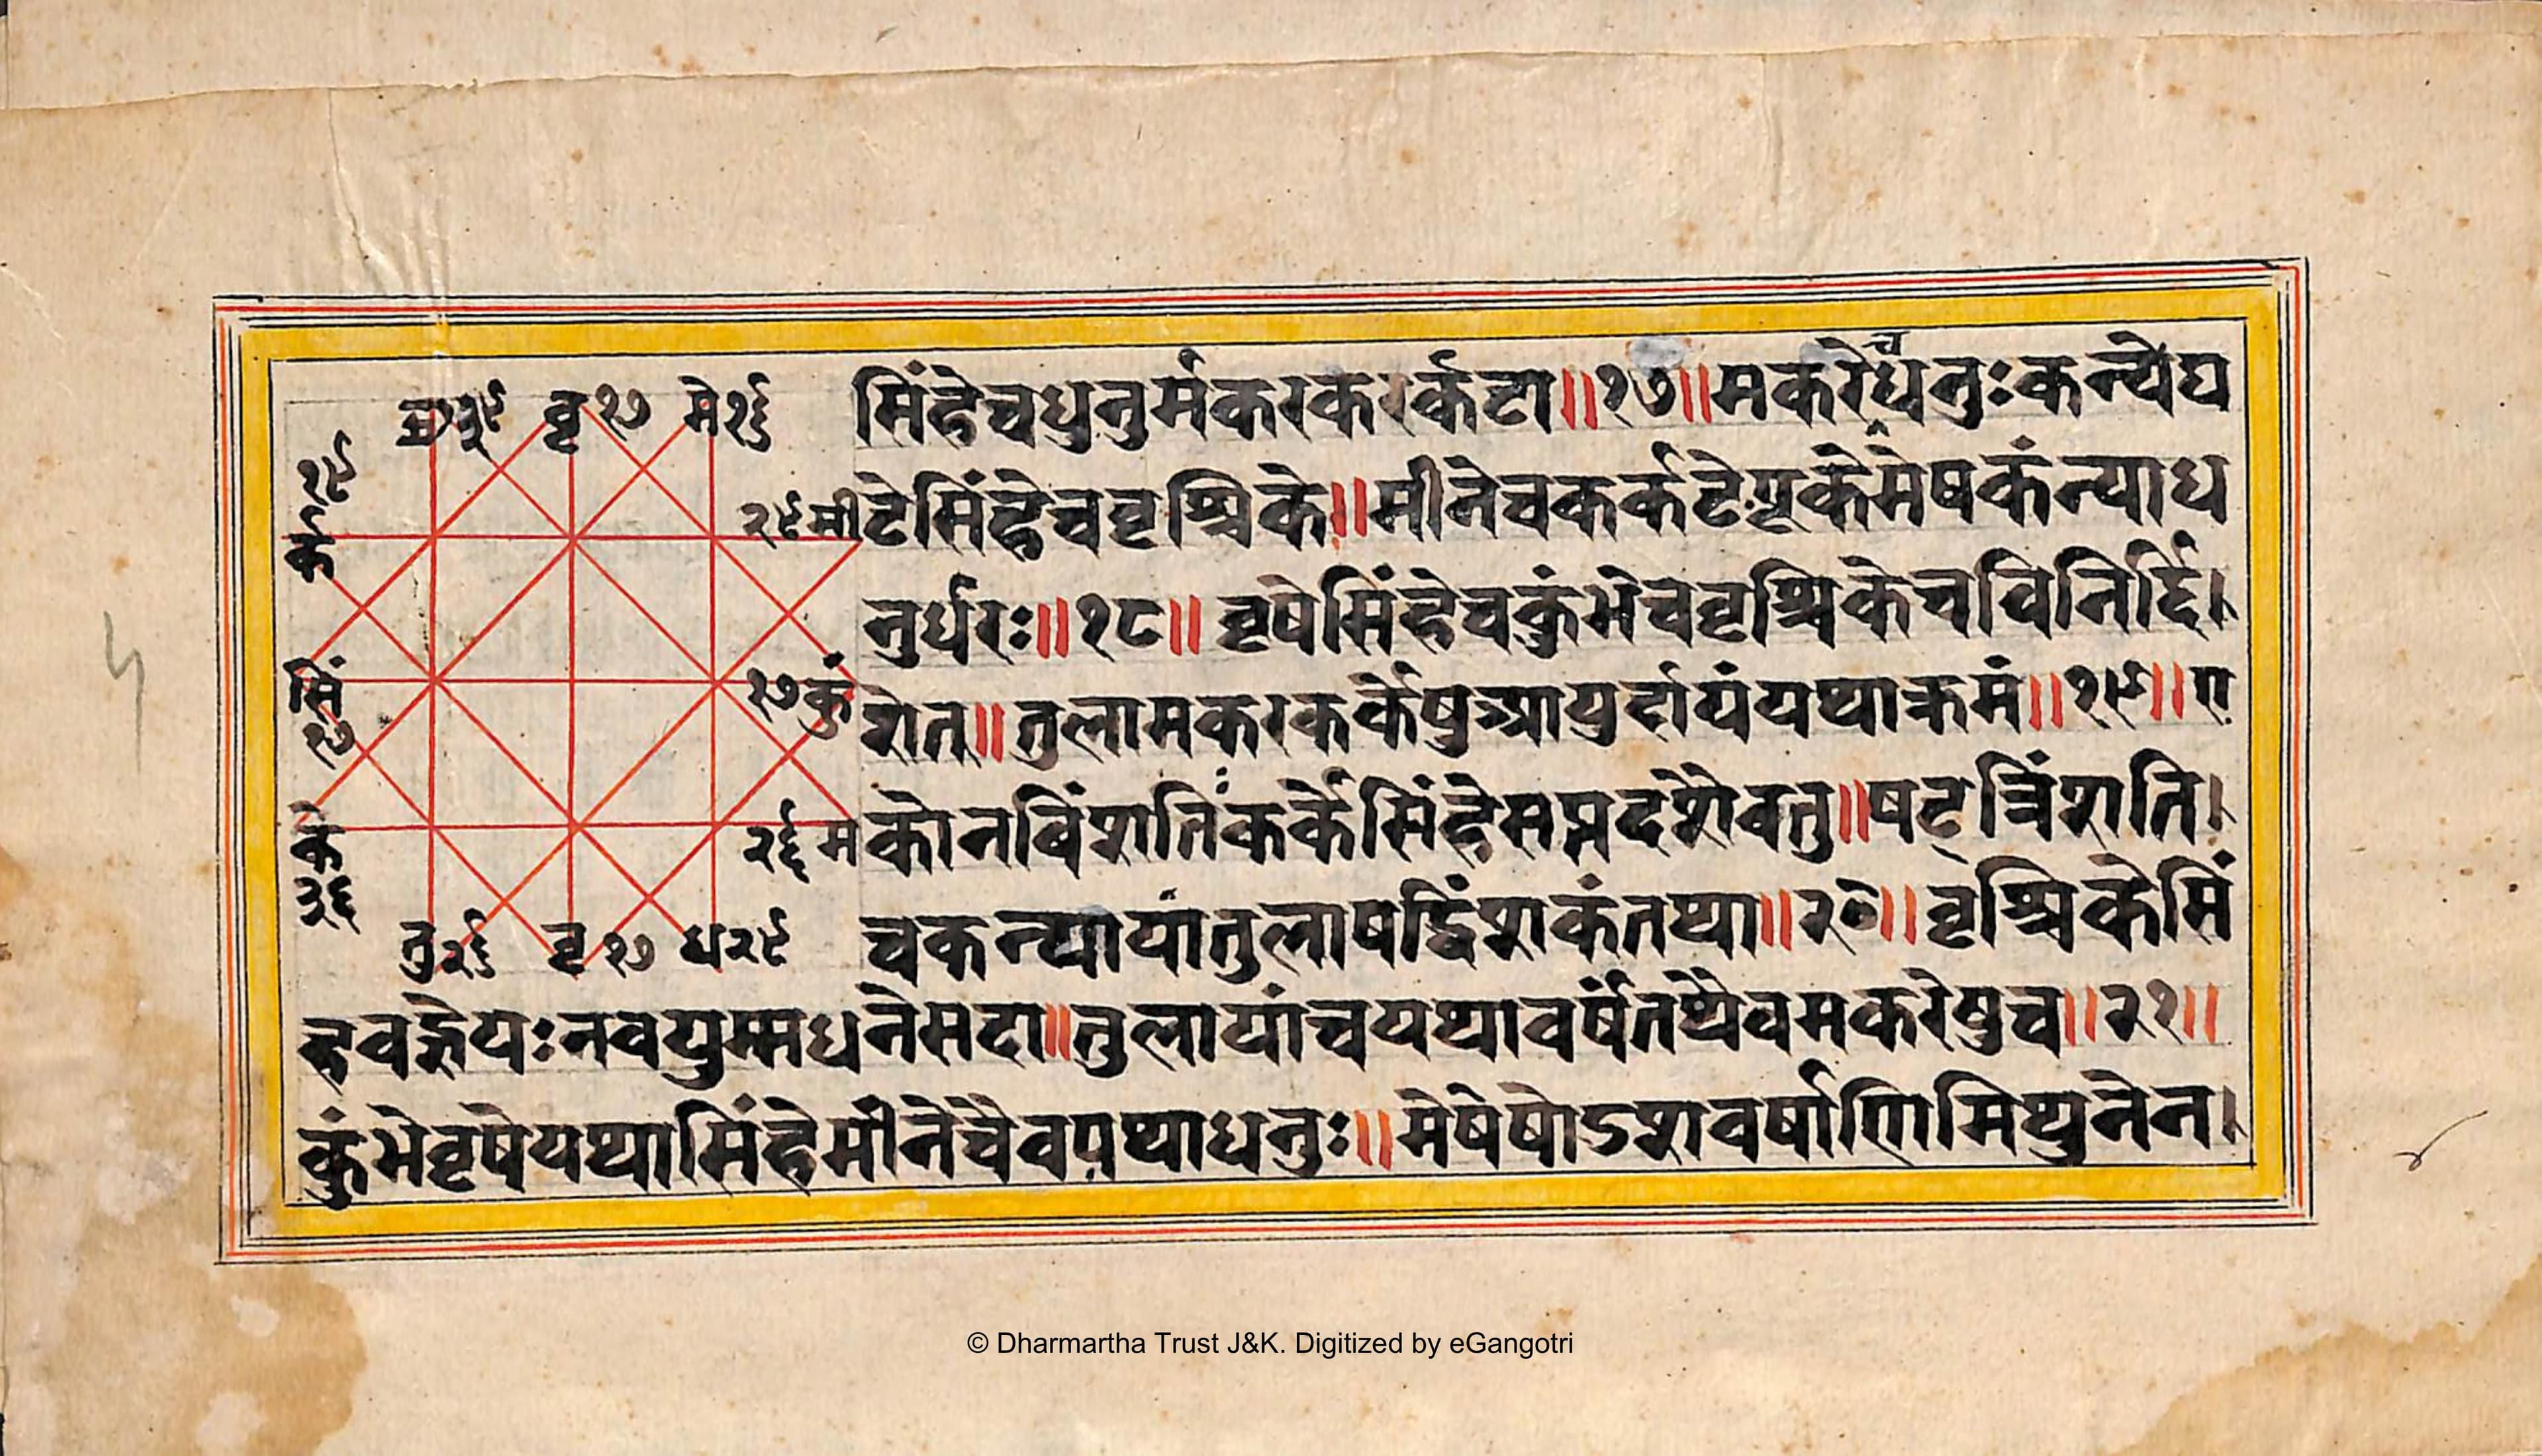 मि३९ वृ१७ मे१६
१९ क
२९मी
सिं १७
१७कुं
क ३६
२६म
तु२६ वृ१७ ध२९
सिंहेचधनुर्मकरकरर्कटा॥१७॥मकरेचधनुःकन्येघ
टेसिंहेचवृश्चिके॥मीनेचकर्कटेयूकेमेषकंन्याध
नुर्धरः॥१८॥वृषेसिंहेचकुंभेचवृश्चिकेचविनिर्द्दि।
शेत्॥तुलामकरकर्केषुआयुर्दायंयथाक्रमं॥१९॥ए
कोनविंशतिंकर्केसिंहेसप्तदशैवतु॥षट्त्रिंशति।
चकन्यायांतुलाषड्विंशकंतथा॥२०॥वृश्चिकेसिं
हवद्ज्ञेयःनवयुग्मधनेसदा॥तुलायांचयथावर्षंतथैवमकरेषुच॥२१॥
कुंभेवृषेयथासिंहेमीनेचैवपथाधनुः॥मेषेषोऽशवर्षाणिमिथुनेन।
© Dharmartha Trust J&K. Digitized by eGangotri